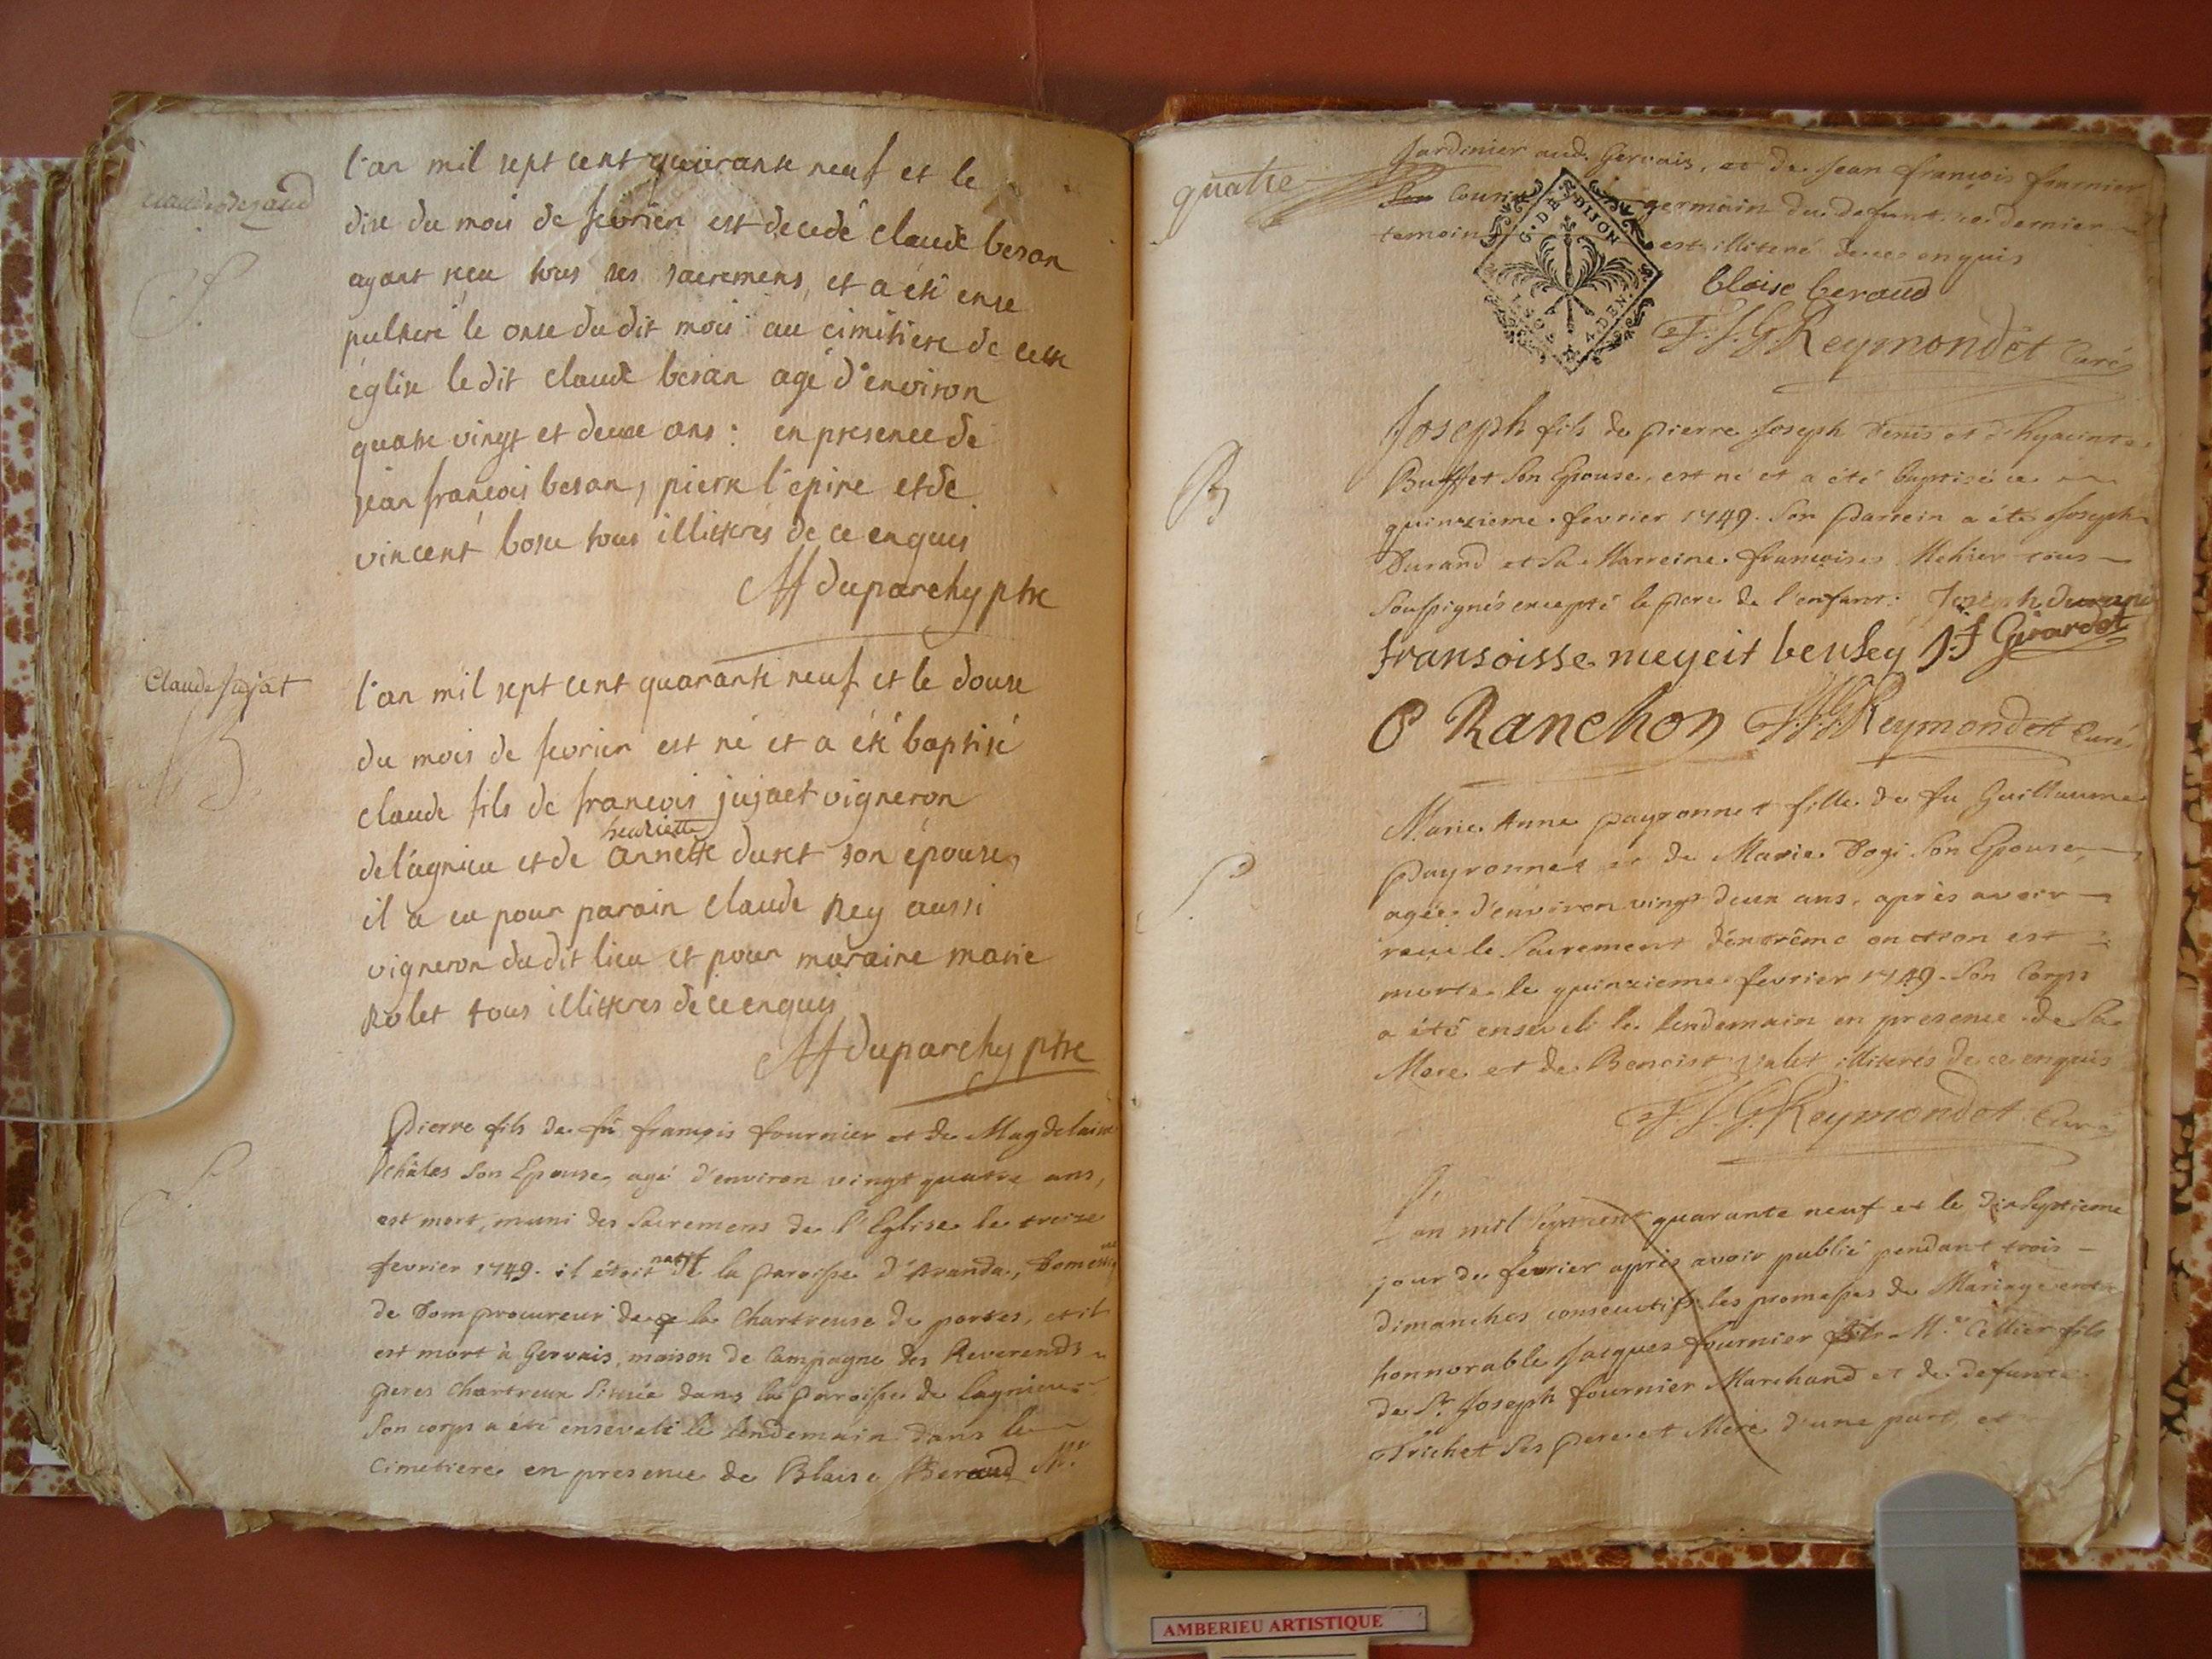 claude besand
l'an mil sept cent quarante neuf et le
dixe du mois de fevrier est decedé claude besan
ayant recu tous ses sacremens, et a été ense
pulturé le onse du dit mois au cimitiere de cette
église le dit claude besan agé d'environ
quatre vingt et deux ans : en presence de
jean françois besan, pierre l'epine et de
vincent bosu tous illitterés de ce enquis
duparchy ptre
Claude jujat
B
l'an mil sept cent quarante neuf et le douse
du mois de fevrier est né et a été baptisé
claude fils de françois jujaet vigneron
henriette
de l'agnieu et de annette duret son épouse,
il a eu pour parain claude Rey aussi
vigneron du dit lieu et pour maraine marie
Rolet tous illitteres de ce enquis
duparchy ptre
S
Pierre fils de fû françois fournier et de Magdelaine
châles son Epouse, agé d'environ vingt quatre ans,
est mort, muni des Sacremens de l'Eglise le treize
fevrier 1749. il étoit natif de la paroisse d'Aranda, Domestique
de Dom procureur de la Chartreuse de portes, et il
est mort à Gervais, maison de Campagne des Reverends
peres Chartreux Située dans la paroisse de Lagnieu
Son corps a été enseveli le lendemain dans le
Cimetiere en presence de Blaise Beraud Mr.
quatre
Jardinier aud. Gervais, et de Jean françois fournier
Son Cousin germain du defunt. ce dernier
temoin est illiteré de ce enquis
G. DE DIJON
blaise beraud
F.J.G. Reymondet Curé
B
Joseph fils de pierre Joseph Denis et d'hyacinte
Buffet Son Epouse, est né et a été baptisé ce
quinzieme fevrier 1749. Son parrein a été Joseph
Durand et Sa Marreine françoise Mehier tous
Soussignés excepté le pere de l'enfant. Joseph durand
fransoisse meyeit J.F Girardot
P Ranchon F.J.G. Reymondet Curé
S
Marie Anne payronnet fille de fu Guillaume
Payronnet et de Marie Dogi Son Epouse,
agée d'environ vingt deux ans, après avoir
reçu le Sacrement d'extrême onction est
morte le quinzieme fevrier 1749. Son Corps
a été enseveli le lendemain en presence de Sa
Mere et de Benoist Valet illiterés de ce enquis
F.J.G. Reymondet Curé
L'an mil Sept cent quarante neuf et le dixseptieme
jour de fevrier après avoir publié pendant trois
dimanches consecutifs les promesses de Mariage entre
honnorable Jacques fournier Me. Cellier fils
de Sr. Joseph fournier Marchand et de defunte
Trichet Ses pere et Mere d'une part, et
AMBERIEU ARTISTIQUE